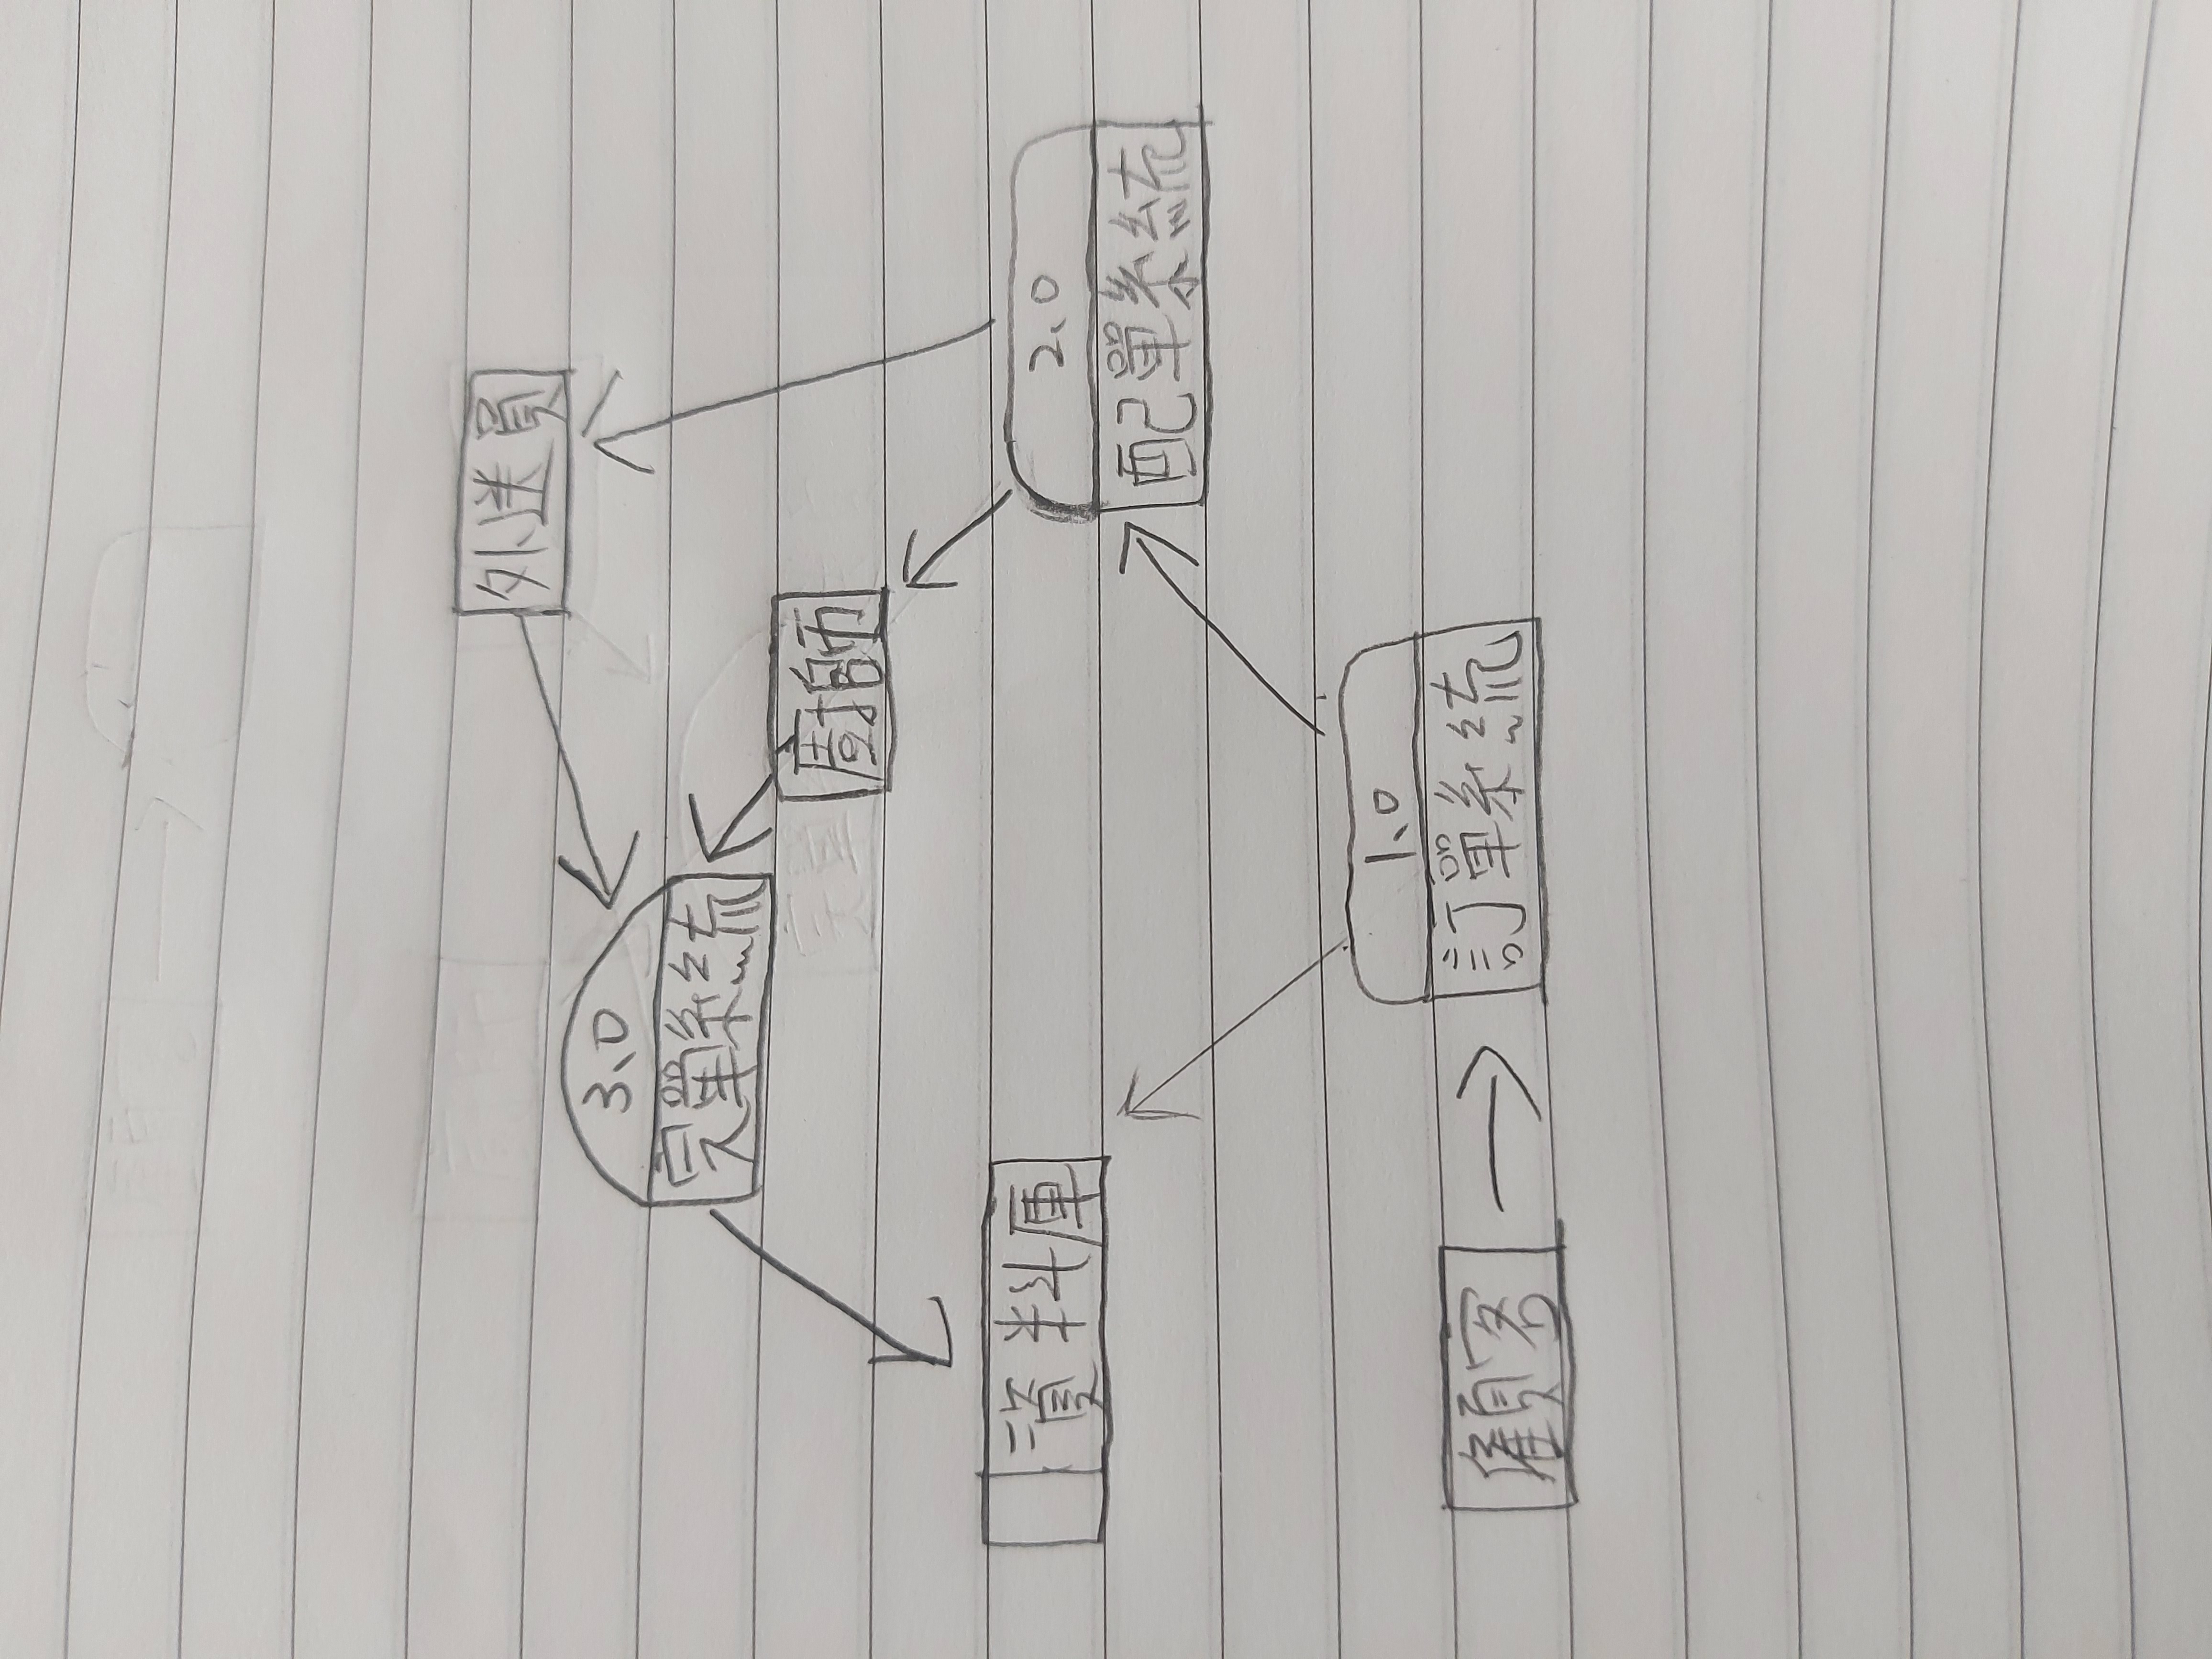 外送員
3、0
完單系統
廚師
資料庫
2、0
配單系統
1、0
訂單系統
顧客